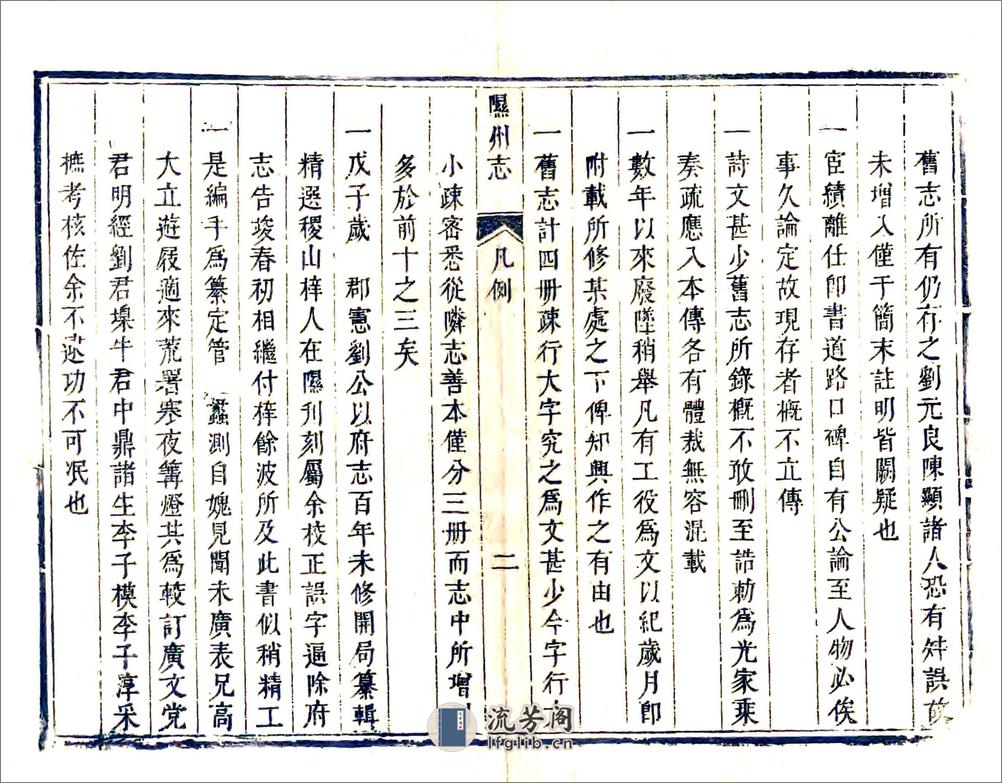 舊志所有仍存之劉元良陳顯諸人恐有舛誤故
未增入僅于簡末註明皆闕疑也
一宦績離任卽書道路口碑自有公論至人物必俟
事久論定故現存者槪不立傳
一詩文甚少舊志所錄槪不敢刪至誥勅爲光家乘
奏疏應入本傳各有體裁無容混載
一數年以來廢墜稍舉凡有工役爲文以紀歲月卽
附載所修某處之下俾知興作之有由也
一舊志計四册疎行大字究之爲文甚少今字行
隰州志 凡例 二
小疎密悉從隣志善本僅分三册而志中所增
多於前十之三矣
一戊子歲 郡憲劉公以府志百年未修開局纂輯
精選稷山梓人在隰刋刻屬余校正誤字逼除府
志告竣春初相繼付梓餘波所及此書似稍精工
一是編手爲纂定管 蠡測自媿見聞未廣表兄高
大立遊屐適來荒署寒夜篝燈共爲較訂廣文党
君明經劉君壕牛君中鼎諸生李子模李子淳采
摭考核佐余不逮功不可泯也
流芳阁
lfglib.cn